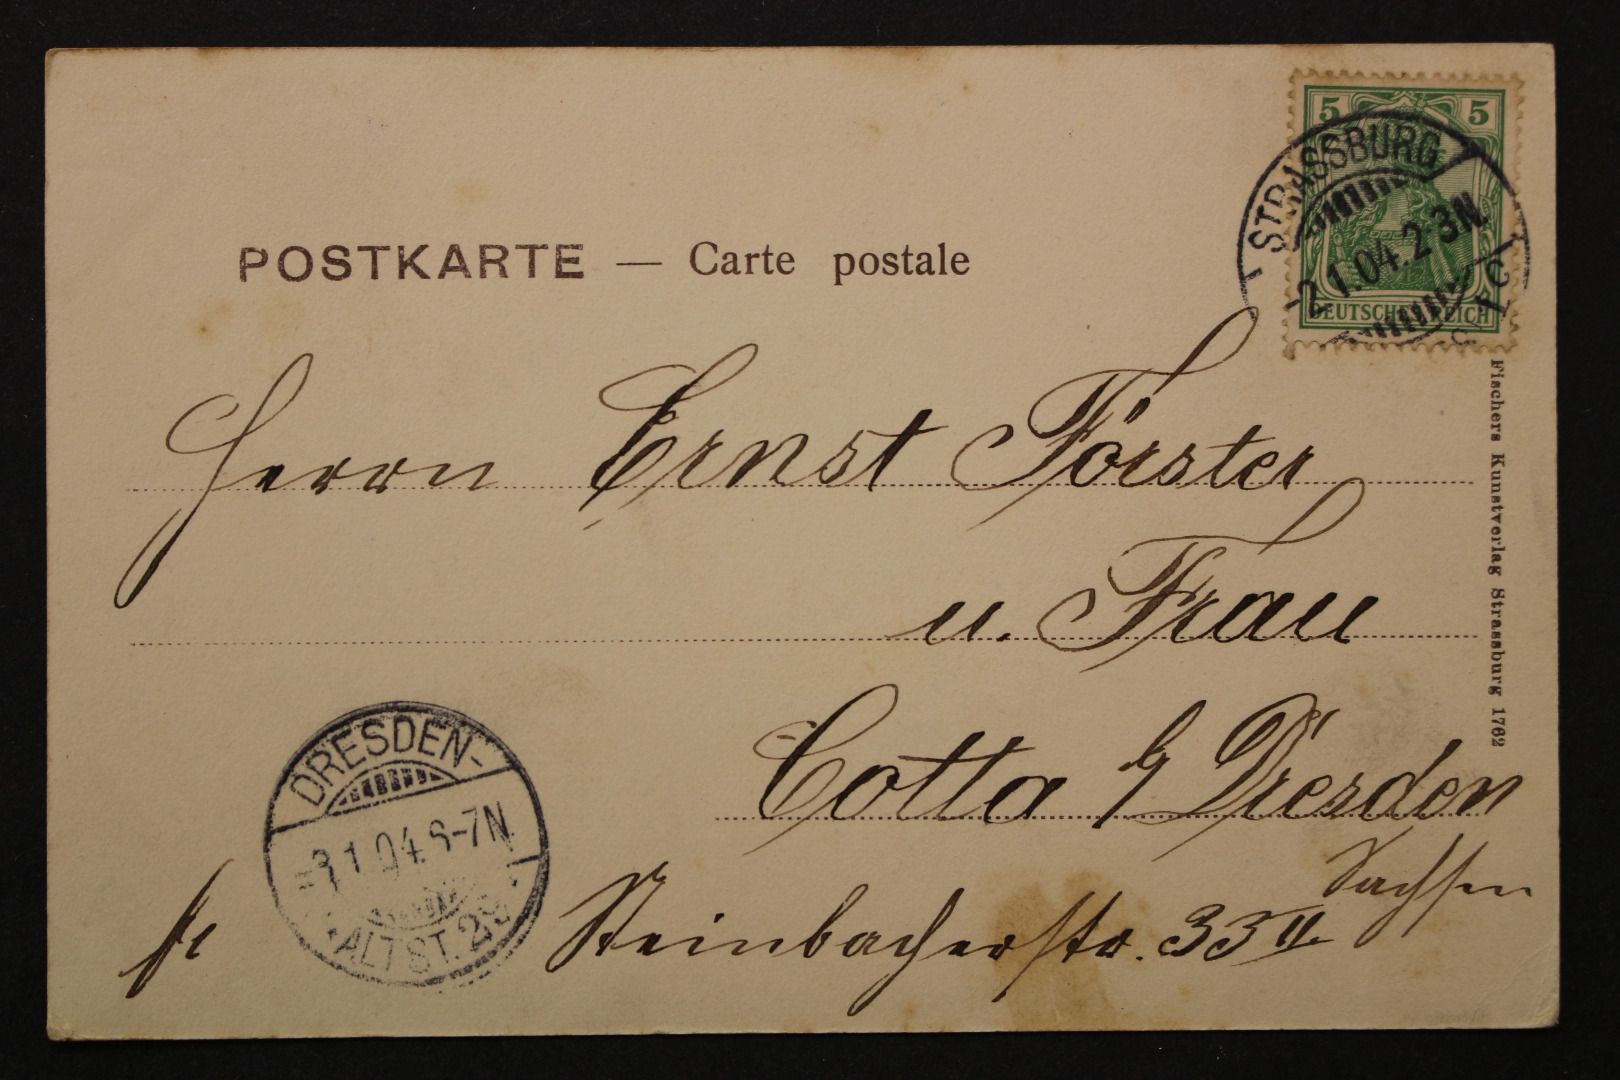 5 5
STRASSBURG
2.1.04.2-3N.
DEUTSCHES REICH
POSTKARTE — Carte postale
Herrn Ernst Förster
u. Frau
Cotta b/ Dresden
Sachsen
Steinbacherstr. 33 II.
DRESDEN-
3.1.04.6-7N.
ALTST. 28
Fischers Kunstverlag Strassburg 1762